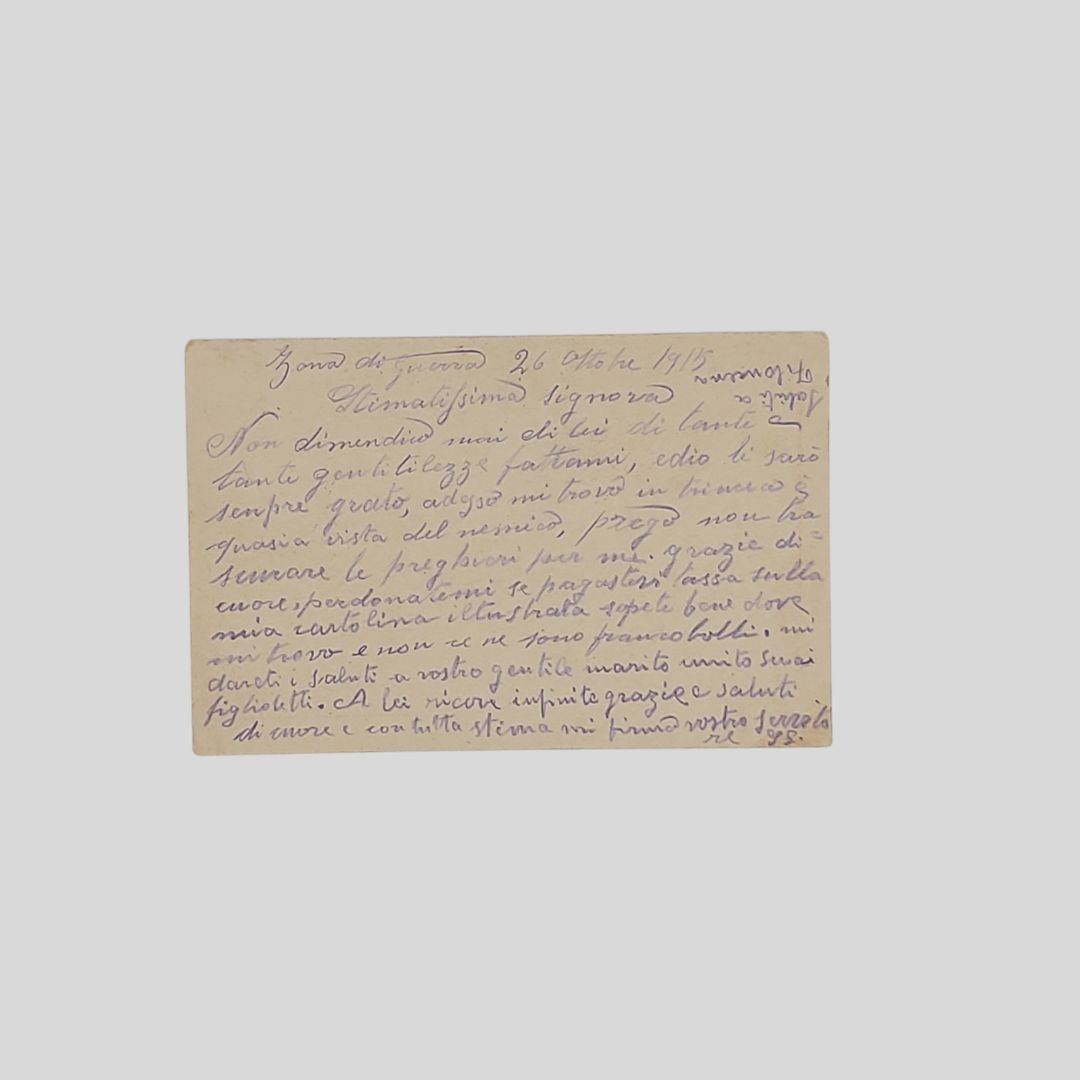 Zona di guerra 26 ottobre 1915
Stimatissima signora
Non dimendico mai di lei di tante e
tante gentitilezze fattami, edio li sarò
senpre grato, adesso mi trovo in trincea è
quasi a vista del nemico, prego non tra
scurare le preghieri per me. grazie di=
cuore, perdonatemi se pagasteri tassa sulla
mia cartolina illustrata sapete bene dove
mi trovo e non ce ne sono francobolli. mi
dareti i saluti a vostro gentile marito unito suoi
figlioletti. A lei ricove infinite grazie e saluti
di cuore e con tutta stima mi firmo vostro servito
re
Saluti a
Filomena